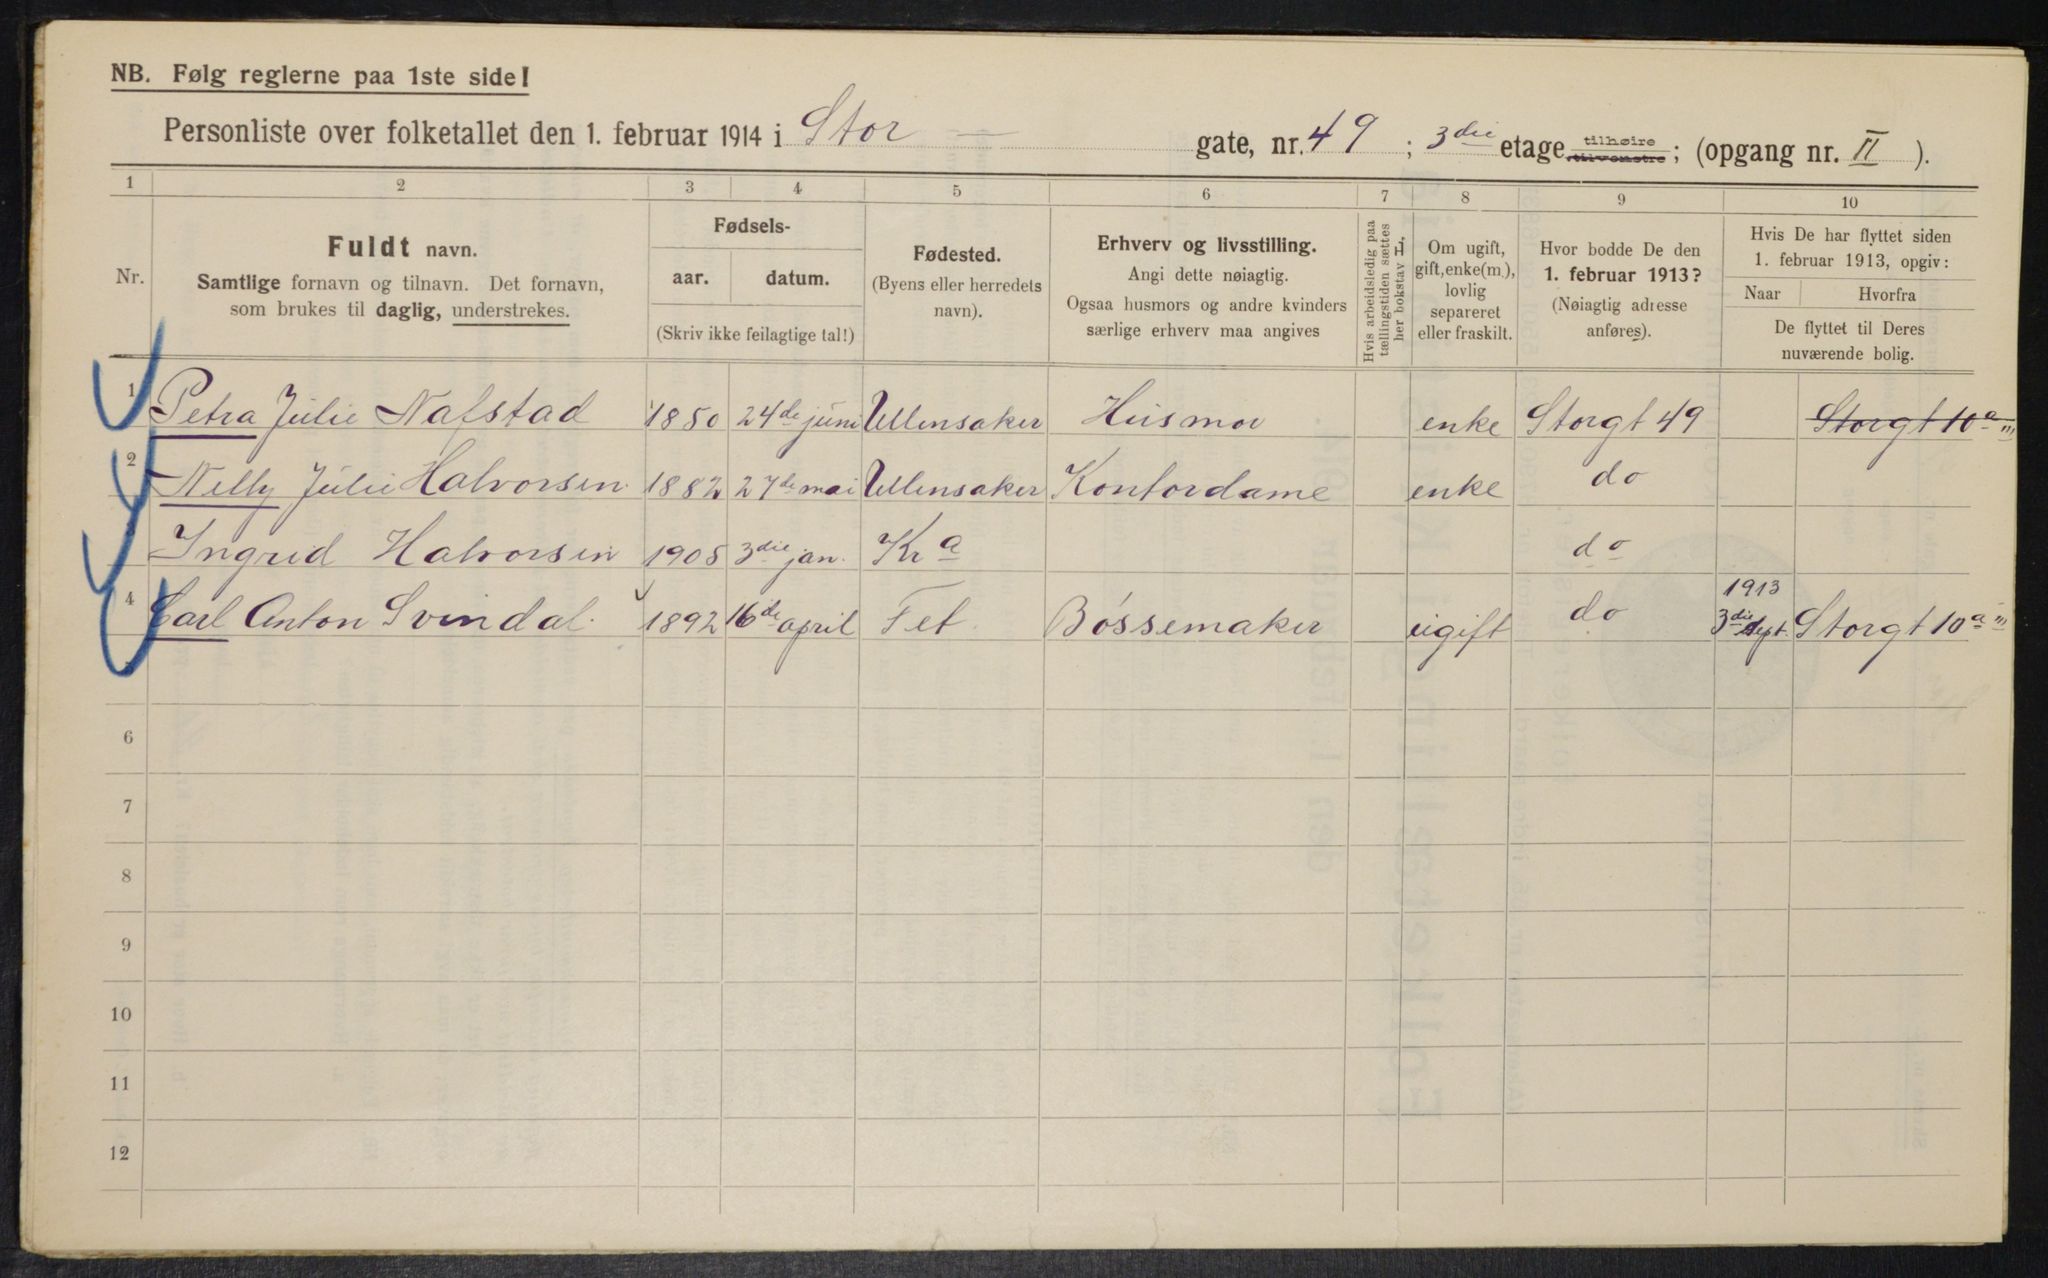 NB. Følg reglerne paa 1ste side!
Personliste over folketallet den 1. februar 1914 i Stor — gate, nr. 49 ; 3die etage tilhøire tilvenstre ; (opgang nr. II ).
1 2 3 4 5 6 7 8 9 10
Nr.
Fuldt navn.
Samtlige fornavn og tilnavn. Det fornavn,
som brukes til daglig, understrekes.
Fødsels-
aar. datum.
(Skriv ikke feilagtige tal!)
Fødested.
(Byens eller herredets
navn).
Erhverv og livsstilling.
Angi dette nøiagtig.
Ogsaa husmors og andre kvinders
særlige erhverv maa angives
Hvis arbeidsledig paa
tællingstiden sættes
her bokstav H.
Om ugift,
gift, enke(m.),
lovlig
separeret
eller fraskilt.
Hvor bodde De den
1. februar 1913?
(Nøiagtig adresse
anføres).
Hvis De har flyttet siden
1. februar 1913, opgiv:
Naar Hvorfra
De flyttet til Deres
nuværende bolig.
1 Petra Julie Nafstad 1850 24de juni Ullensaker Husmor enke Storgt 49 Storgt 10a III
2 Nelly Julie Halvorsen 1882 27de mai Ullensaker Kontordame enke do
3 Ingrid Halvorsen 1905 3die jan. Kra do
4 Carl Anton Svindal. 1892 16de april Fet Bøssemaker ugift do 1913 3die sept. Storgt 10a III
6
7
8
9
10
11
12